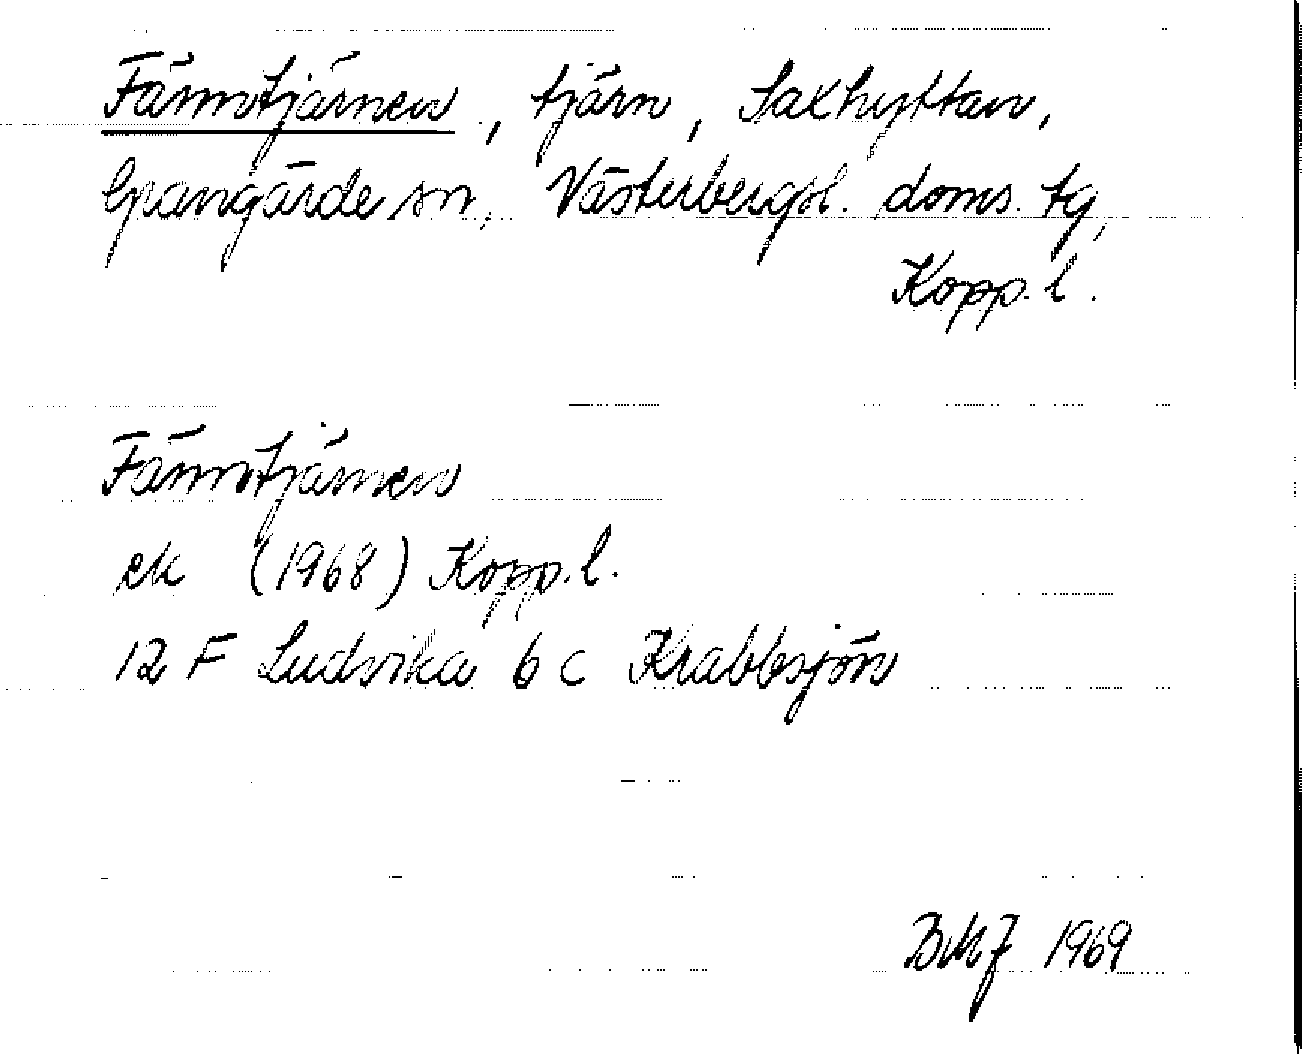 Fämtjärnen, tjärn, Saxhyttan,
Grangärde sn, Västerbergsl. doms. tg,
Kopp. l.
Fämtjärnen
ek (1968) Kopp. l.
12 F Ludvika 6 c Krabbsjön
BMJ 1969